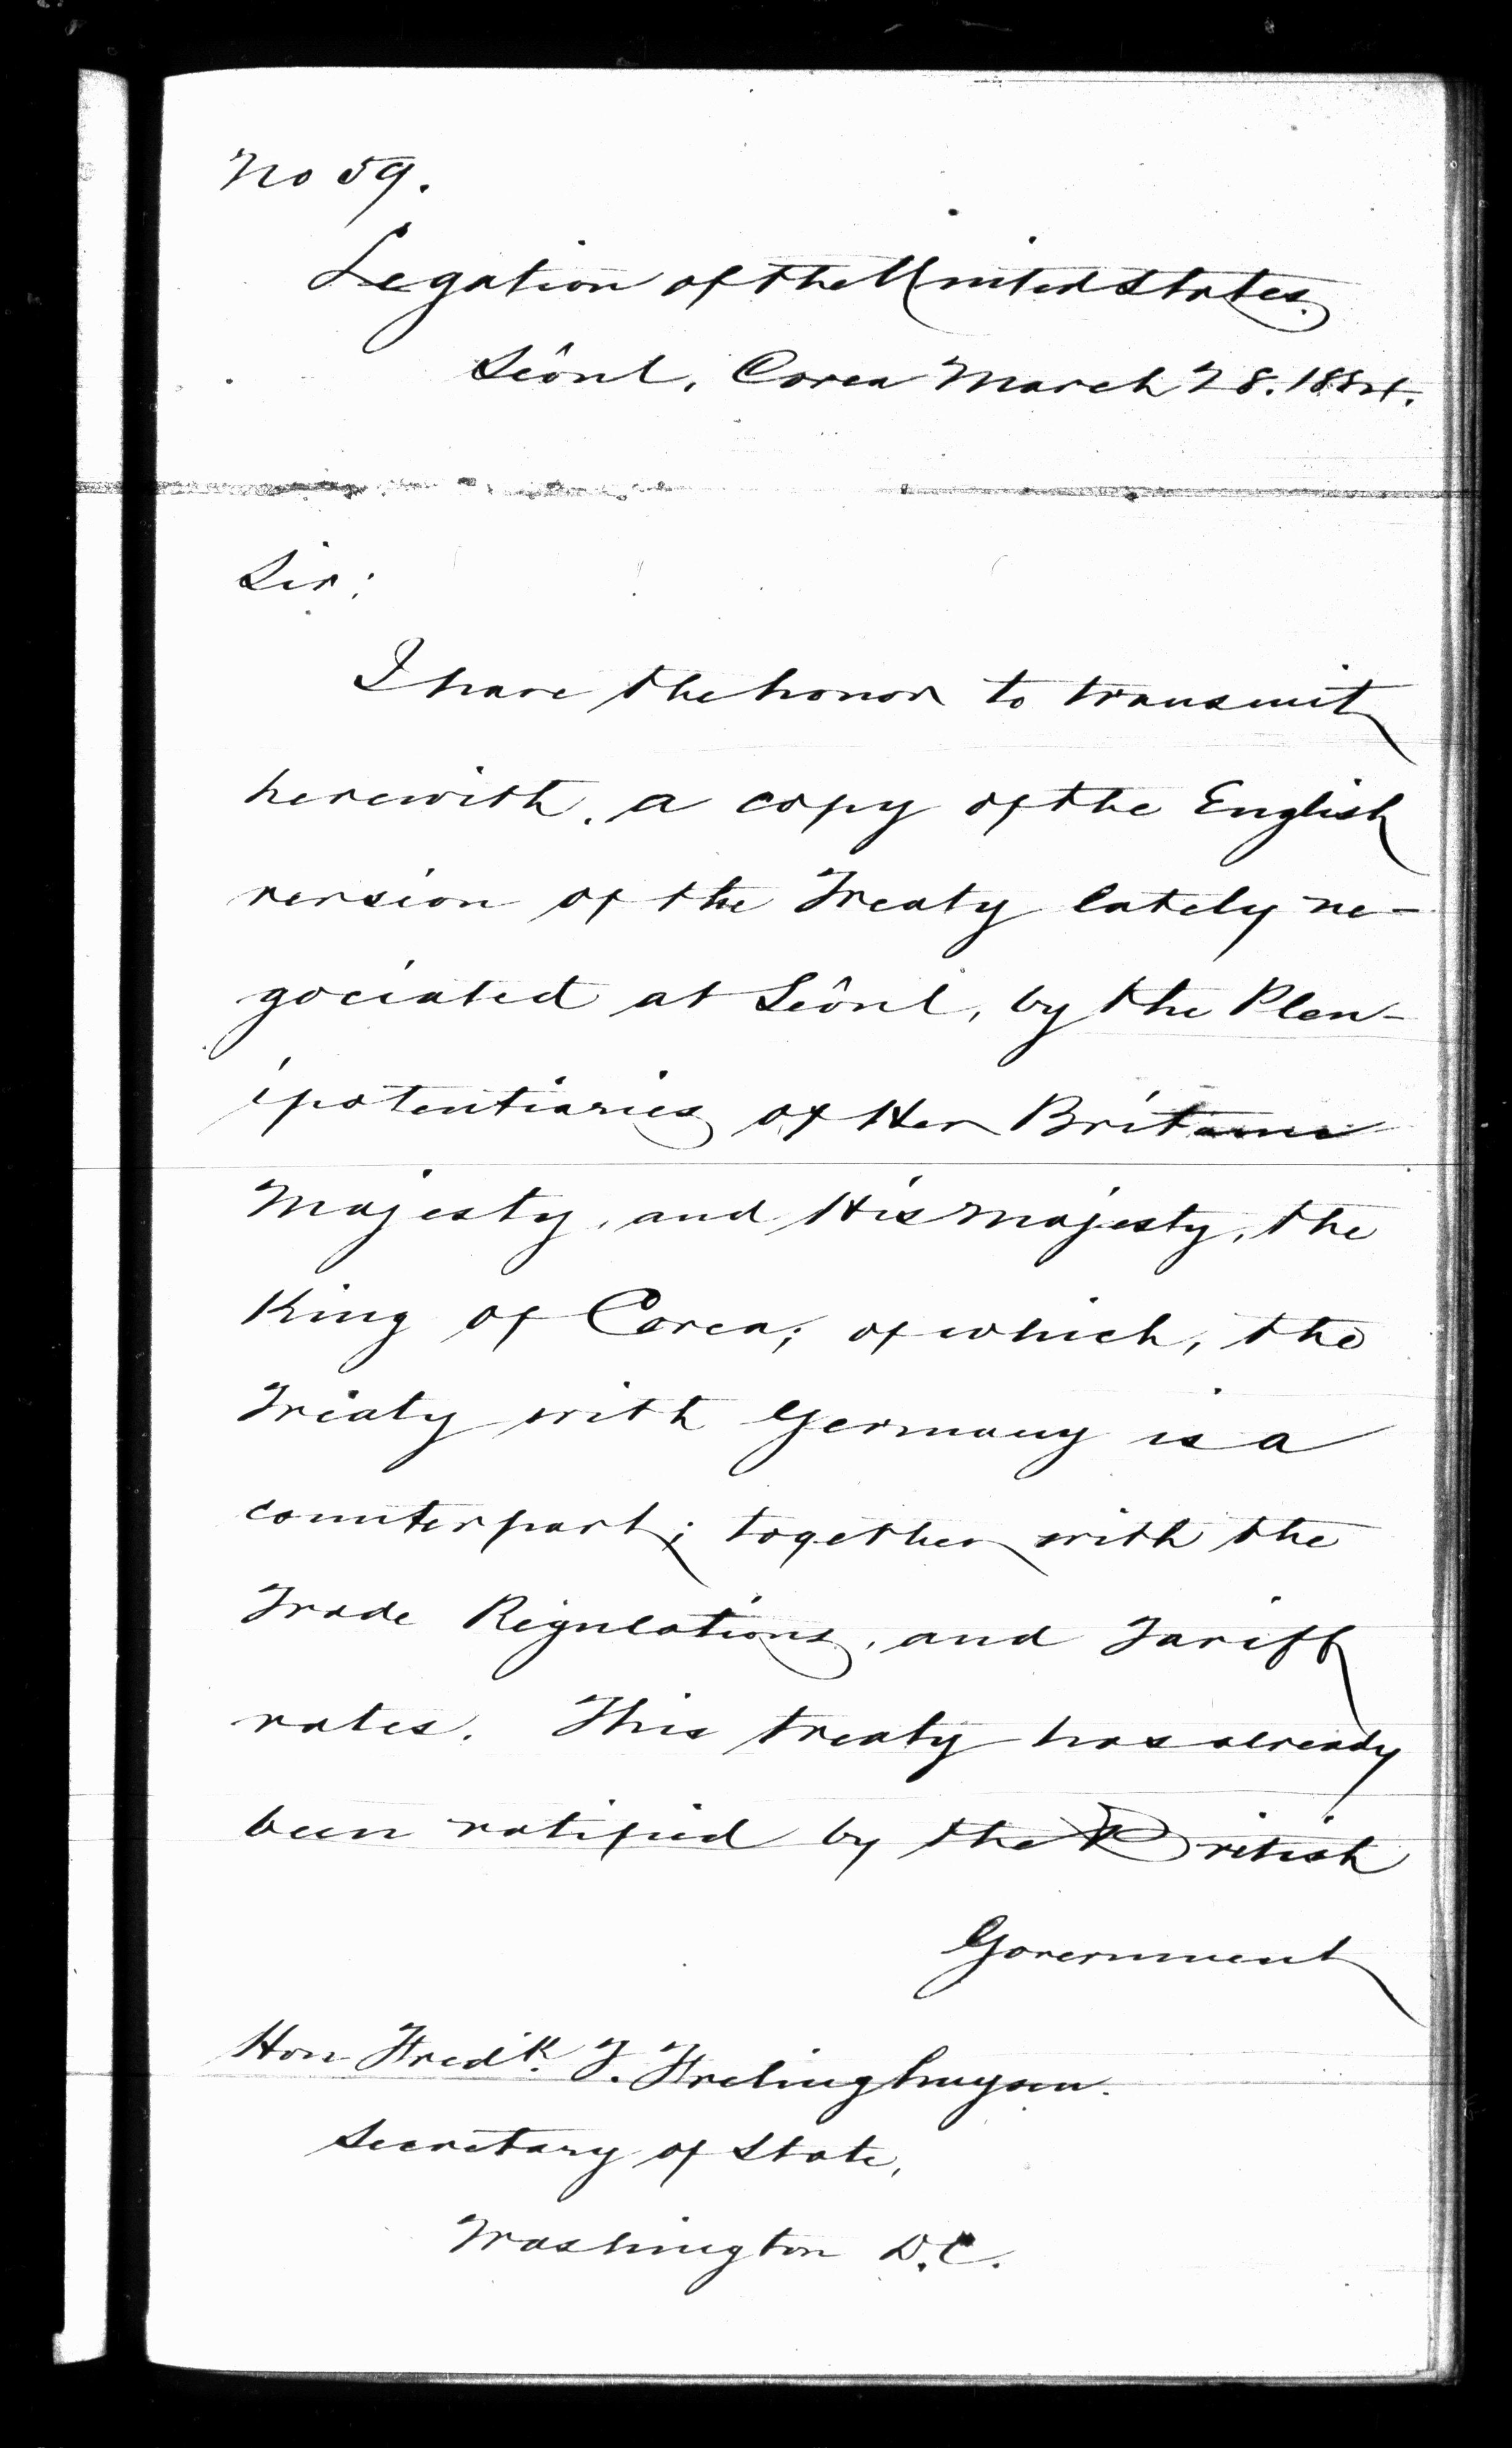 No 59.
Legation of the United States.
Seôul, Corea March 28. 1884.
Sir:
I have the honor to transmit
herewith, a copy of the English
version of the Treaty lately ne-
gociated at Seôul, by the Plen-
ipotentiaries of Her Britanic
Majesty, and His Majesty, the
King of Corea; of which, the
Treaty with Germany is a
counterpart; together with the
Trade Regulations, and Tariff
rates. This treaty has already
been ratified by the British
Government
Hon Fredk. T. Frelinghuysen.
Secretary of State,
Washington D.C.